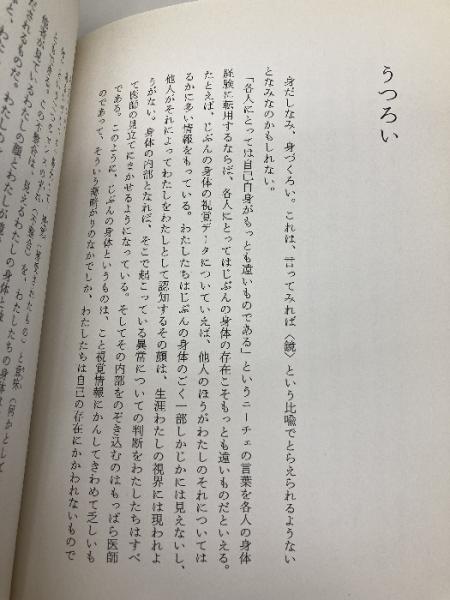 うつろい
身だしなみ、身づくろい。これは、言ってみれば〈鏡〉という比喩でとらえられるようない
となみなのかもしれない。
「各人にとっては自己自身がもっとも遠いものである」というニーチェの言葉を各人の身体
経験に転用するならば、各人にとってはじぶんの身体の存在こそもっとも遠いものだといえる。
たとえば、じぶんの身体の視覚データについていえば、他人のほうがわたしのそれについては
るかに多い情報をもっている。わたしたちはじぶんの身体のごく一部しかじかには見えないし、
他人がそれによってわたしをわたしとして認知するその顔は、生涯わたしの視界には現われよ
うがない。身体の内部となれば、そこで起こっている異常についての判断をわたしたちはすべ
て医師の見立てにまかせるようになっている。そしてその内部をのぞき込むのはもっぱら医師
である。このように、じぶんの身体というものは、こと視覚情報にかんしてきわめて乏しいも
のであって、そういう薄暗がりのなかでしか、わたしたちは自己の存在にかかわれないもので